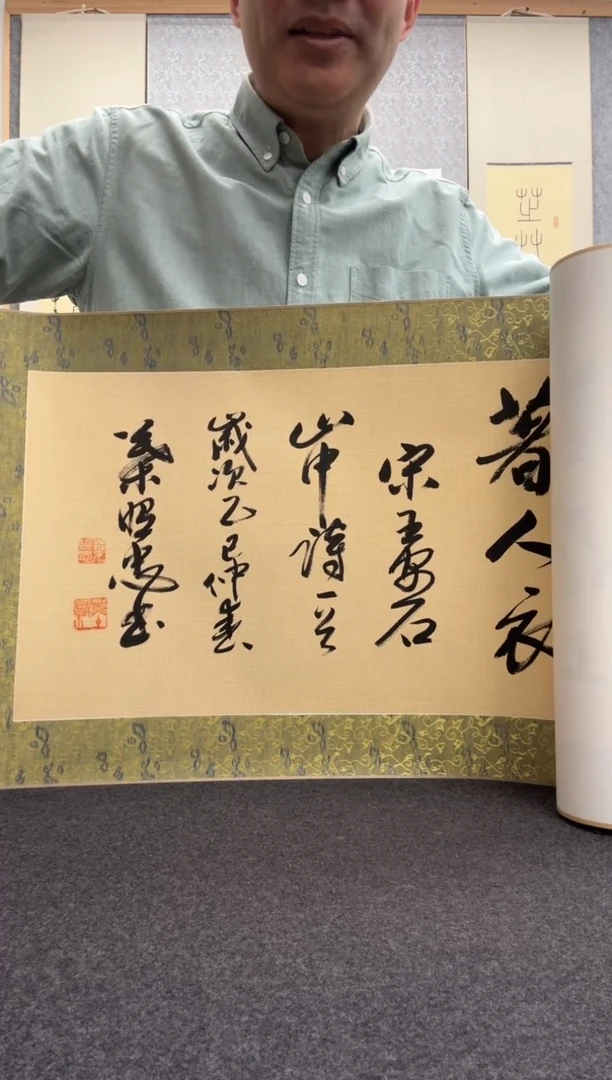 著人衣
宋王安石
山中詩一首
歲次乙巳仲春
葉昭忠書